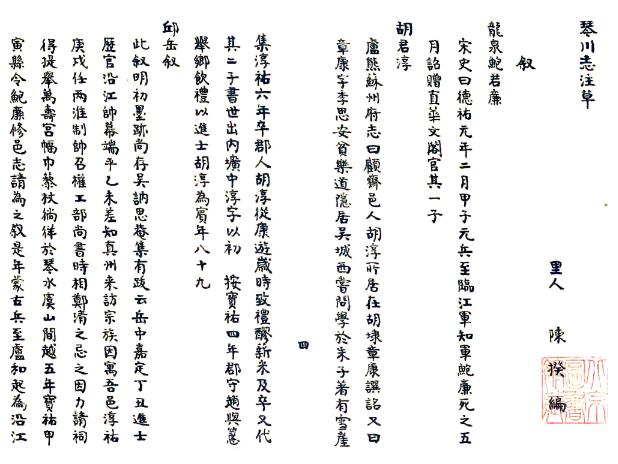 琴川志注草
里人 陳揆編
敘
龍泉鮑若廉
宋史曰德祐元年二月甲子元兵至臨江軍知軍鮑廉死之五
月詔贈直華文閣官其一子
胡君淳
盧熊蘇州府志曰顧齋邑人胡淳所居在胡埭章康譔誌又曰
章康字季思安貧樂道隱居吳城西嘗問學於朱子著有雪崖
四
集淳祐六年卒郡人胡淳從康遊歲時致禮醪新米及卒又代
其二子書世出内壙中淳字以初 按寶祐四年郡守趙與𥲅
舉鄉飲禮以進士胡淳為賓年八十九
邱岳敘
此敘明初墨跡尚存吳訥思菴集有跋云岳中嘉定丁丑進士
歷官沿江帥幕端平乙未差知真州來訪宗族因寓吾邑淳祐
庚戌任兩淮制帥召權工部尚書時相鄭清之忌之因力請祠
得提舉萬壽宮幅巾藜杖徜徉於琴水虞山間越五年寶祐甲
寅縣令鮑廉修邑志請為之敘是年蒙古兵至廬和起為沿江